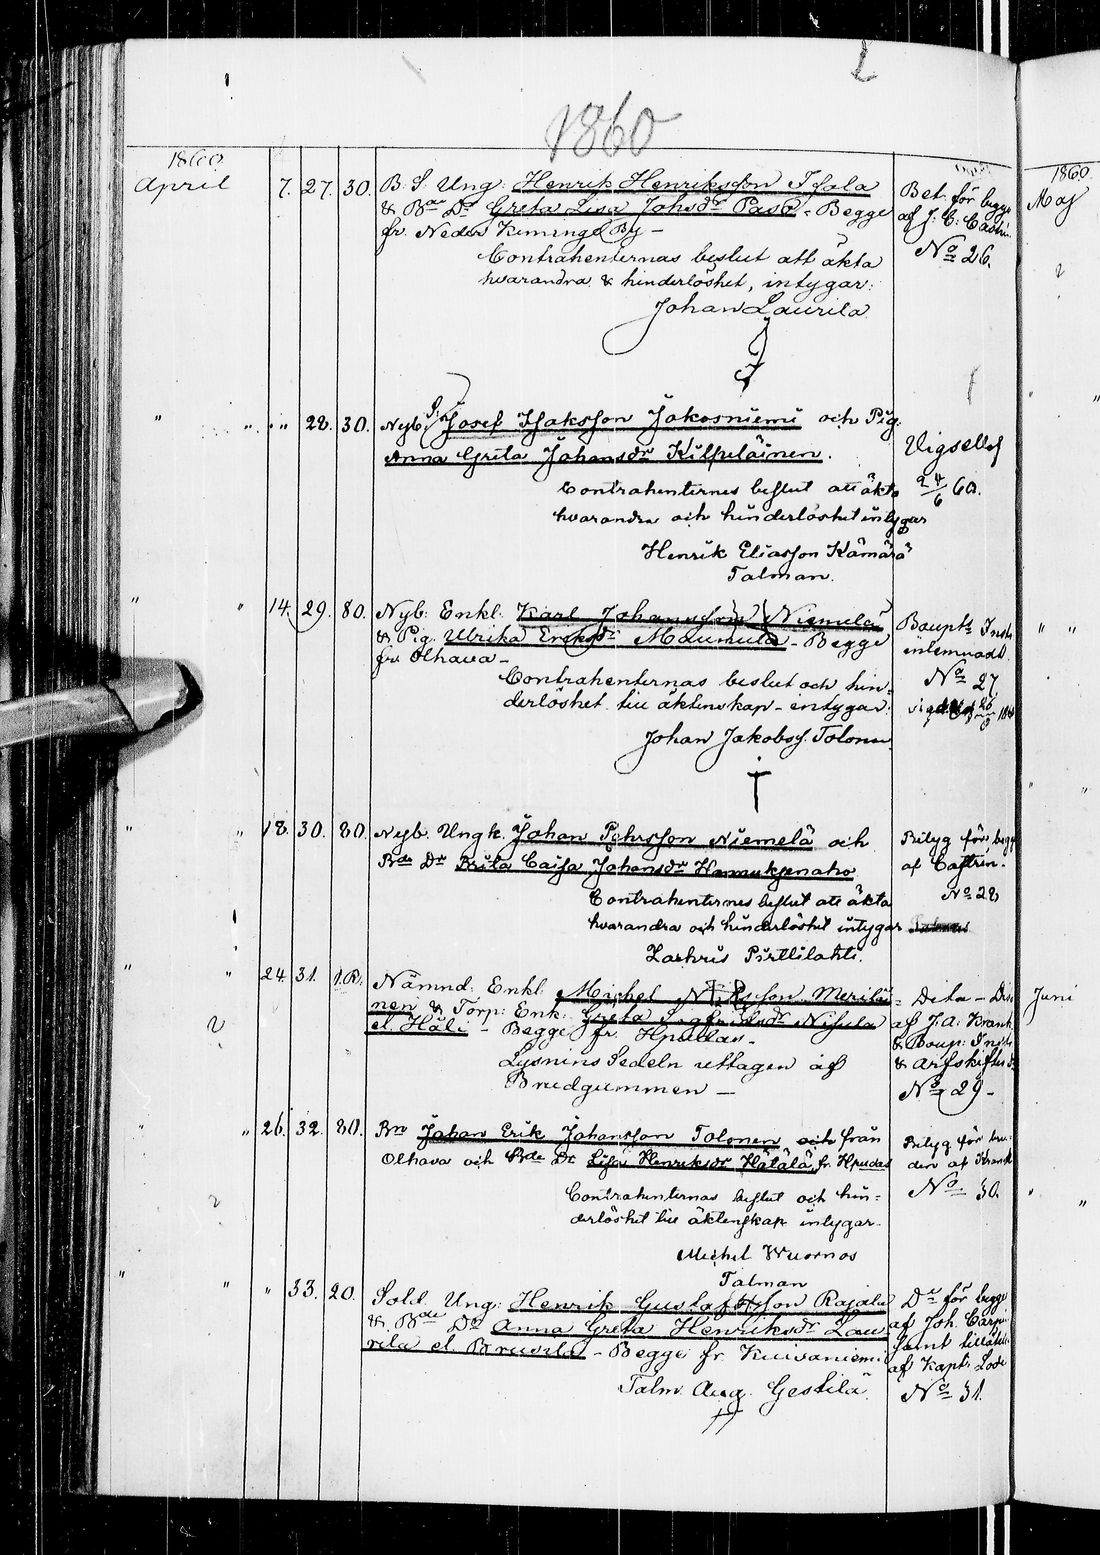 1860
1860.
April 7. 27. 30. B. S. Ung: Henrik Henriksson Isola
& Bde Dr Greta Lisa Johsdr Paso - Begge
fr. Neder Kiminge By -
Contrahenternas beslut att äkta
hvarandra & hinderlöshet, intygar:
Johan Laurila
Bet. för begge
af J. C. Castrén
No 26.
" " " 28. 30. Nyb. S: Josef Isaksson Jakosniemi och Pig.
Anna Greta Johansdr Kilpeläinen.
Contrahenternes beslut att äkta
hvarandra och hinderlöshet intygar
Henrik Eliasson Kämärä
Talman.
Vigselbf
24/6 60.
" " 14. 29. 80. Nyb: Enkl. Karl Johansson Niemelä
& Pig. Ulrika Eriksdr Maunula - Begge
fr. Olhava -
Contrahenternas beslut och hin-
derlöshet till äktenskap - intygar:
Johan Jakobsf. Tolonen
Boupts Instr
inlemnadt.
No 27
" " 18. 30. 80. Nyb. Ungk. Johan Pehrsson Niemelä och
Bde Dr Brita Caisa Johansdr Hannuksenaho
Contrahenternes beslut att äkta
hvarandra och hinderlöshet intygar
Zachris Pirttilahti.
Bityg för begge
af Castrén.
No 28
" " 24. 31. 1.R. Nämnd: Enkl: Michel Nilsson Meriläi-
nen & Torp: Enk: Greta Sigfridsdr Nisula
el Häli - Begge fr. Hpudas -
Lysnins Sedeln uttagen af
Brudgummen -
Dito - Dito
af J: A: Krank
& Boup: Instr
& Arfskiftes
No 29 -
" 26. 32. 80. Bn Johan Erik Johansson Tolonen och från
Olhava och Bde Dr Lisa Henriksdr Hätälä fr. Hpudas
Contrahenternas beslut och hin-
derlöshet till äktenskap intygar
Michel Wuornos
Talman
Bityg för bru-
den af Krank
No 30.
" " " 33. 20. Sold. Ung: Henrik Gustafsson Rajala
& Bde Dr Anna Greta Henriksdr Lau-
rila el Bruusila - Begge fr. Kuivaniemi
Talm. Aug. Gestilä
Do för begge
af Joh. Carp
samt tillåtels
af Kapt. Lode
No 31.
1860.
Maj
Juni